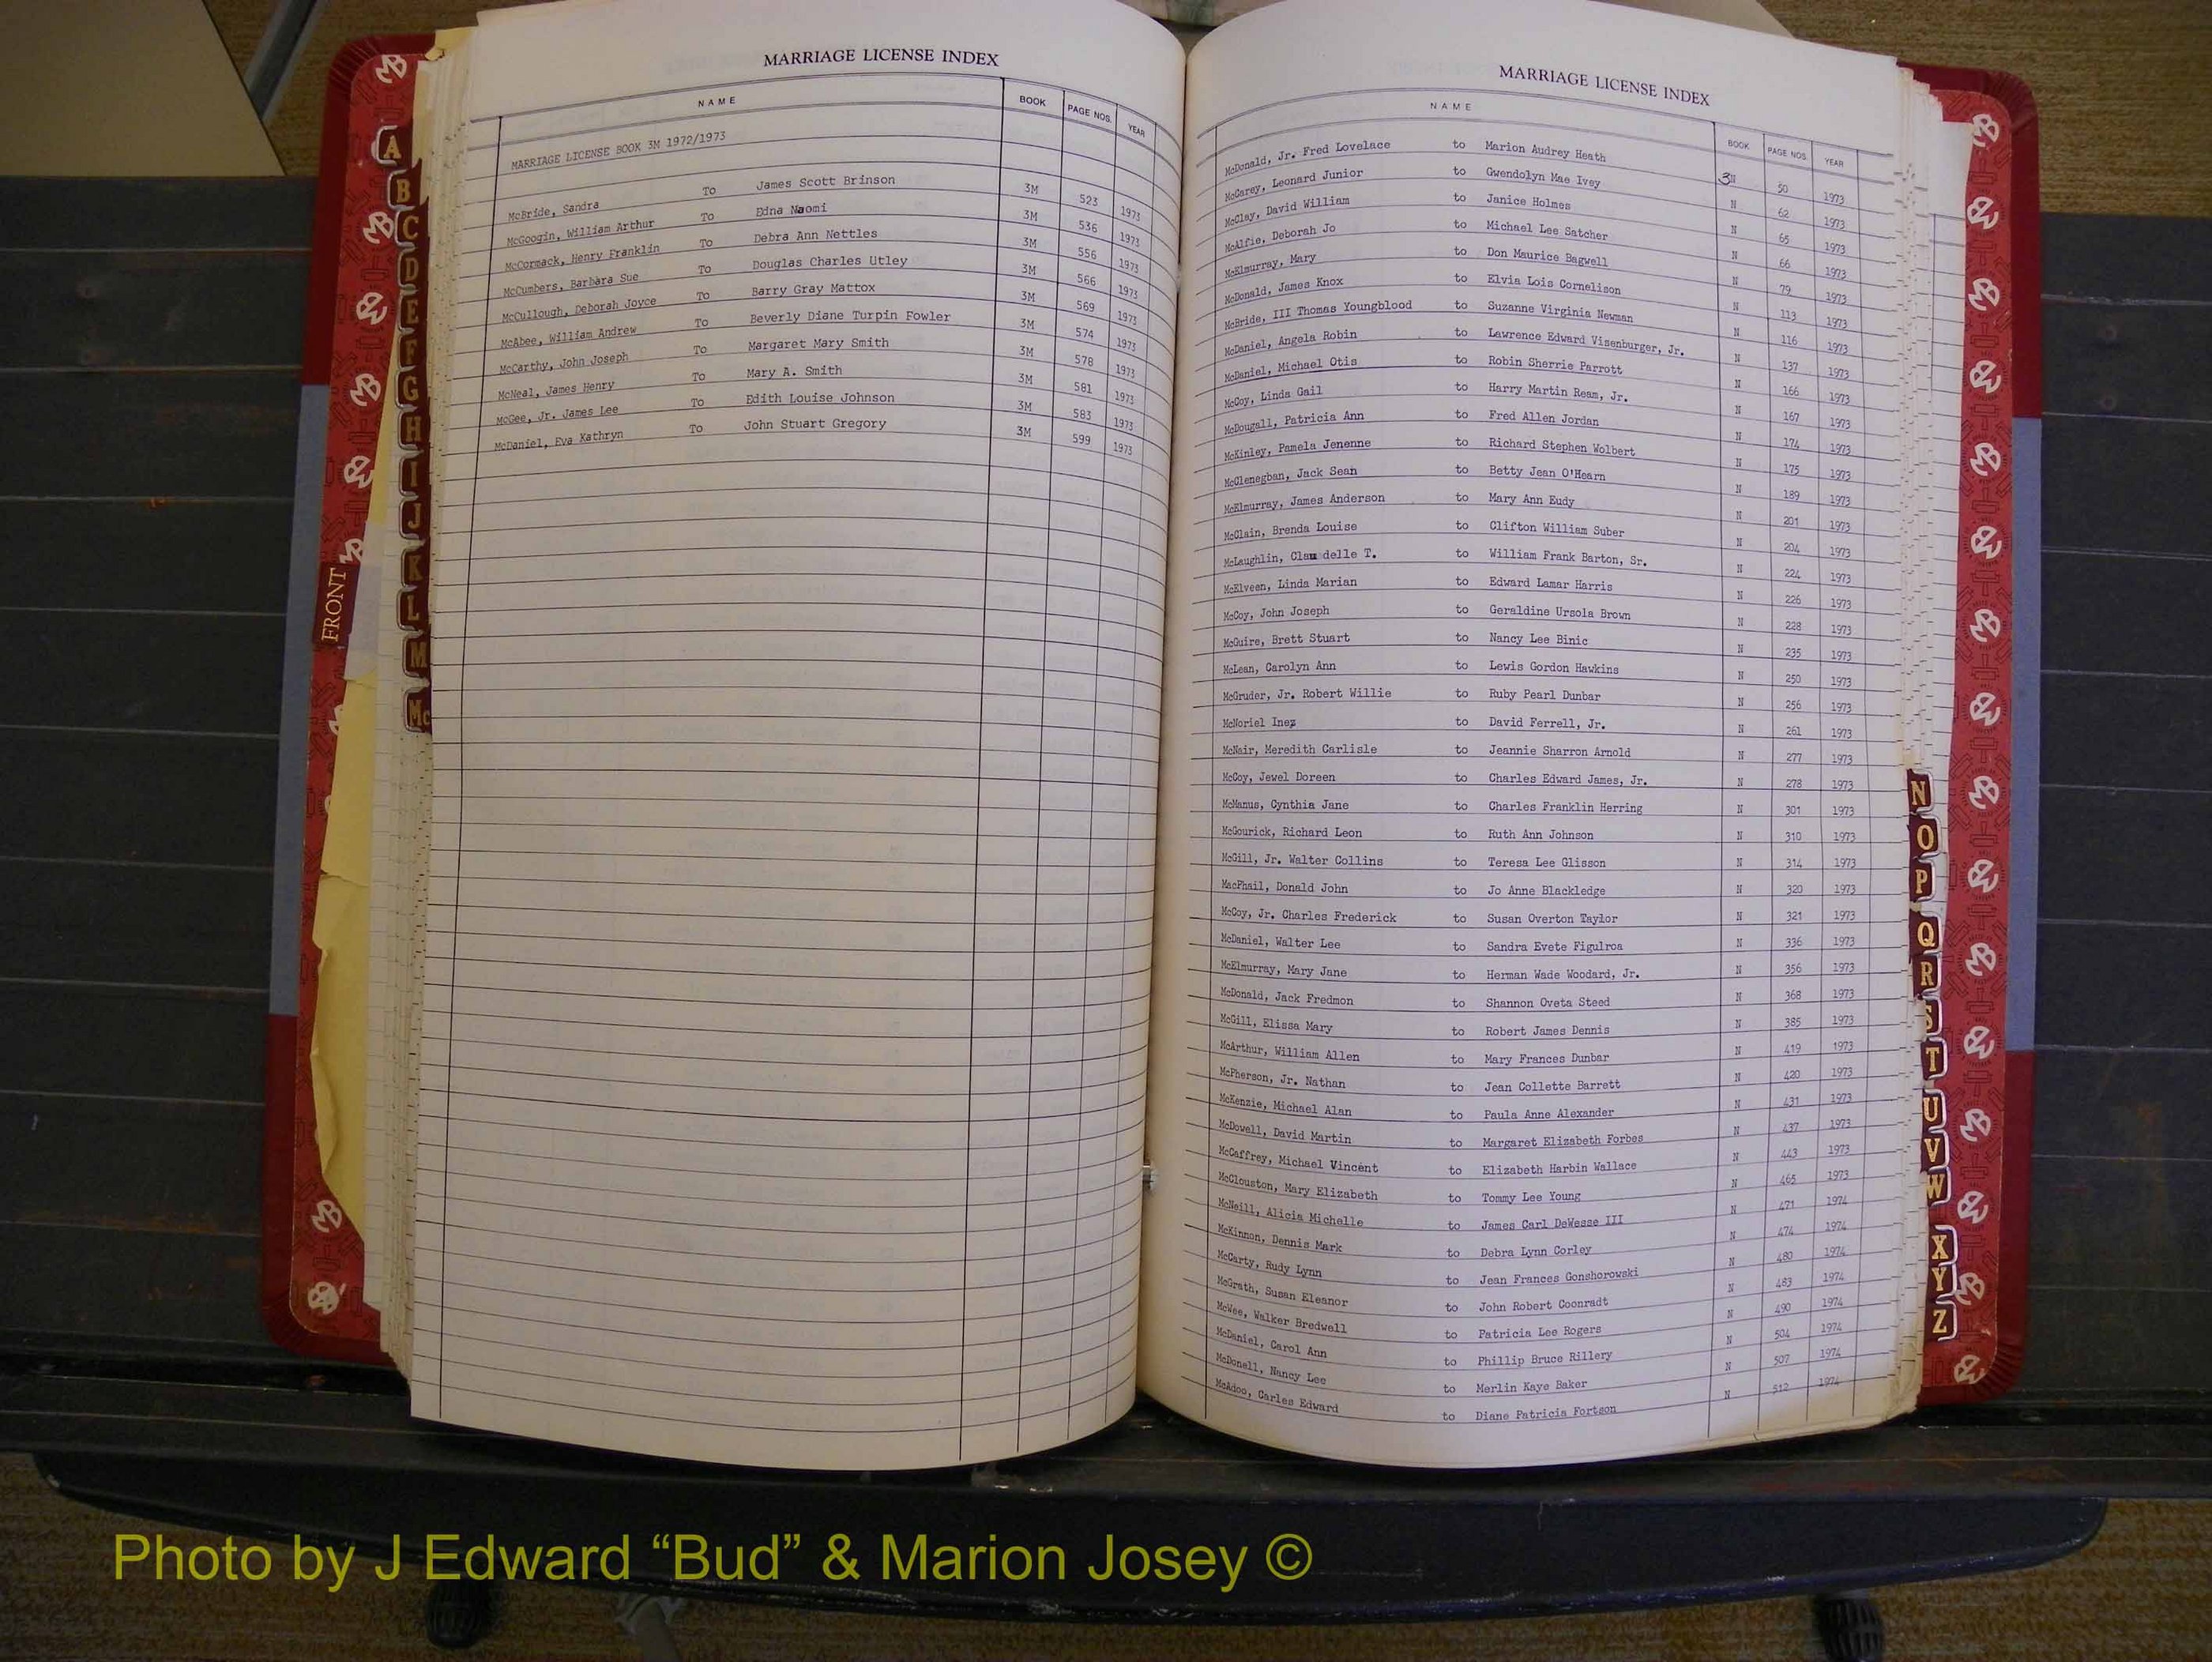 MARRIAGE LICENSE INDEX
NAME BOOK PAGE NOS. YEAR
MARRIAGE LICENSE BOOK 3M 1972/1973
McBride, Sandra To James Scott Brinson 3M 523 1973
McGoogin, William Arthur To Edna Naomi 3M 536 1973
McCormack, Henry Franklin To Debra Ann Nettles 3M 556 1973
McCumbers, Barbara Sue To Douglas Charles Utley 3M 566 1973
McCullough, Deborah Joyce To Barry Gray Mattox 3M 569 1973
McAbee, William Andrew To Beverly Diane Turpin Fowler 3M 574 1973
McCarthy, John Joseph To Margaret Mary Smith 3M 578 1973
McNeal, James Henry To Mary A. Smith 3M 581 1973
McGee, Jr. James Lee To Edith Louise Johnson 3M 583 1973
McDaniel, Eva Kathryn To John Stuart Gregory 3M 599 1973
MARRIAGE LICENSE INDEX
NAME BOOK PAGE NOS. YEAR
McDonald, Jr. Fred Lovelace to Marion Audrey Heath 3N 50 1973
McCarey, Leonard Junior to Gwendolyn Mae Ivey N 62 1973
McClay, David William to Janice Holmes N 65 1973
McAlfie, Deborah Jo to Michael Lee Satcher N 66 1973
McElmurray, Mary to Don Maurice Bagwell N 79 1973
McDonald, James Knox to Elvia Lois Cornelison N 113 1973
McBride, III Thomas Youngblood to Suzanne Virginia Newman N 116 1973
McDaniel, Angela Robin to Lawrence Edward Visenburger, Jr. N 137 1973
McDaniel, Michael Otis to Robin Sherrie Parrott N 166 1973
McCoy, Linda Gail to Harry Martin Ream, Jr. N 167 1973
McDougall, Patricia Ann to Fred Allen Jordan N 174 1973
McKinley, Pamela Jenenne to Richard Stephen Wolbert N 175 1973
McClenegban, Jack Sean to Betty Jean O'Hearn N 189 1973
McElmurray, James Anderson to Mary Ann Eudy N 201 1973
McClain, Brenda Louise to Clifton William Suber N 204 1973
McLaughlin, Clau delle T. to William Frank Barton, Sr. N 224 1973
McElveen, Linda Marian to Edward Lamar Harris N 226 1973
McCoy, John Joseph to Geraldine Ursola Brown N 228 1973
McGuire, Brett Stuart to Nancy Lee Binic N 235 1973
McLean, Carolyn Ann to Lewis Gordon Hawkins N 250 1973
McGruder, Jr. Robert Willie to Ruby Pearl Dunbar N 256 1973
McNoriel Inez to David Ferrell, Jr. N 261 1973
McNair, Meredith Carlisle to Jeannie Sharron Arnold N 277 1973
McCoy, Jewel Doreen to Charles Edward James, Jr. N 278 1973
McManus, Cynthia Jane to Charles Franklin Herring N 301 1973
McGourick, Richard Leon to Ruth Ann Johnson N 310 1973
McGill, Jr. Walter Collins to Teresa Lee Glisson N 314 1973
MacPhail, Donald John to Jo Anne Blackledge N 320 1973
McCoy, Jr. Charles Frederick to Susan Overton Taylor N 321 1973
McDaniel, Walter Lee to Sandra Evete Figulroa N 336 1973
McElmurray, Mary Jane to Herman Wade Woodard, Jr. N 356 1973
McDonald, Jack Fredmon to Shannon Oveta Steed N 368 1973
McGill, Elissa Mary to Robert James Dennis N 385 1973
McArthur, William Allen to Mary Frances Dunbar N 419 1973
McPherson, Jr. Nathan to Jean Collette Barrett N 420 1973
McKenzie, Michael Alan to Paula Anne Alexander N 431 1973
McDowell, David Martin to Margaret Elizabeth Forbes N 437 1973
McCaffrey, Michael Vincent to Elizabeth Harbin Wallace N 443 1973
McClouston, Mary Elizabeth to Tommy Lee Young N 465 1973
McNeill, Alicia Michelle to James Carl DeWesse III N 471 1974
McKinnon, Dennis Mark to Debra Lynn Corley N 474 1974
McCarty, Rudy Lynn to Jean Frances Gonshorowski N 480 1974
McGrath, Susan Eleanor to John Robert Coonradt N 483 1974
McWee, Walker Bredwell to Patricia Lee Rogers N 490 1974
McDaniel, Carol Ann to Phillip Bruce Rillery N 504 1974
McDonell, Nancy Lee to Merlin Kaye Baker N 507 1974
McAdoo, Carles Edward to Diane Patricia Fortson N 512 1974
A
B
C
D
E
F
G
H
I
J
K
L
M
Mc
FRONT
N
O
P
Q
R
S
T
U
V
W
X
Y
Z
Photo by J Edward “Bud” & Marion Josey ©